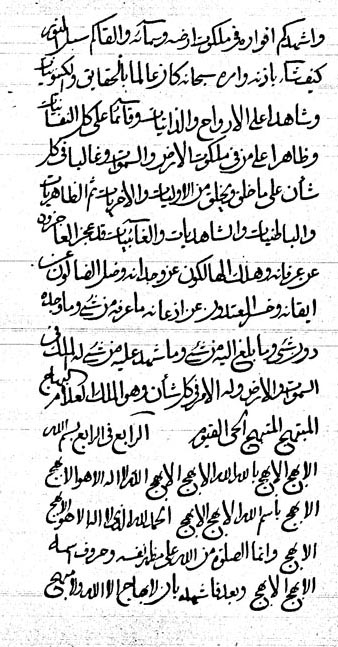 واشهدكم اقواره فى ملكوت ارضه وسمائه والقائم
كيف يشاء باذنه وامره سبحانه كان عالما بالحقايق والكينونيات
وشاهدا على الارواح والذاتيات وقائما على كل النفسانيات
وظاهرا على من فى ملكوت الارض والسموات وغالبا فى كل
شأن على ما خلق ويخلق من الاوليات والاخريات ثم الظاهريات
والباطنيات والشاهديات والغائبيات قد عجز العارفون
عن عرفانه وهلك الهالكون عن وجدانه وضل الضالون عن
ايقانه وخسر المعتدون عن اذعانه ما عرفه من شئ وما وجده
دون شئ وما بلغ اليه من شئ وما شهد عليه من شئ له الملك فى
السموات والارض وله الامر فى كل شأن وهو الملك العلام
المبتهج المبتهج الحى القيوم الرابع فى الرابع بسم الله
الابهج الابهج بالله الله الابهج الابهج الله لا اله الا هو الابهج
الابهج باسم الله الابهج الابهج الحمد لله الذى لا اله الا هو الابهج
الابهج وانما الصلوة من الله على مظهر نفسه وحروف اسمه
الابهج الابهج وبعد فاشهد بان لا اله الا الله